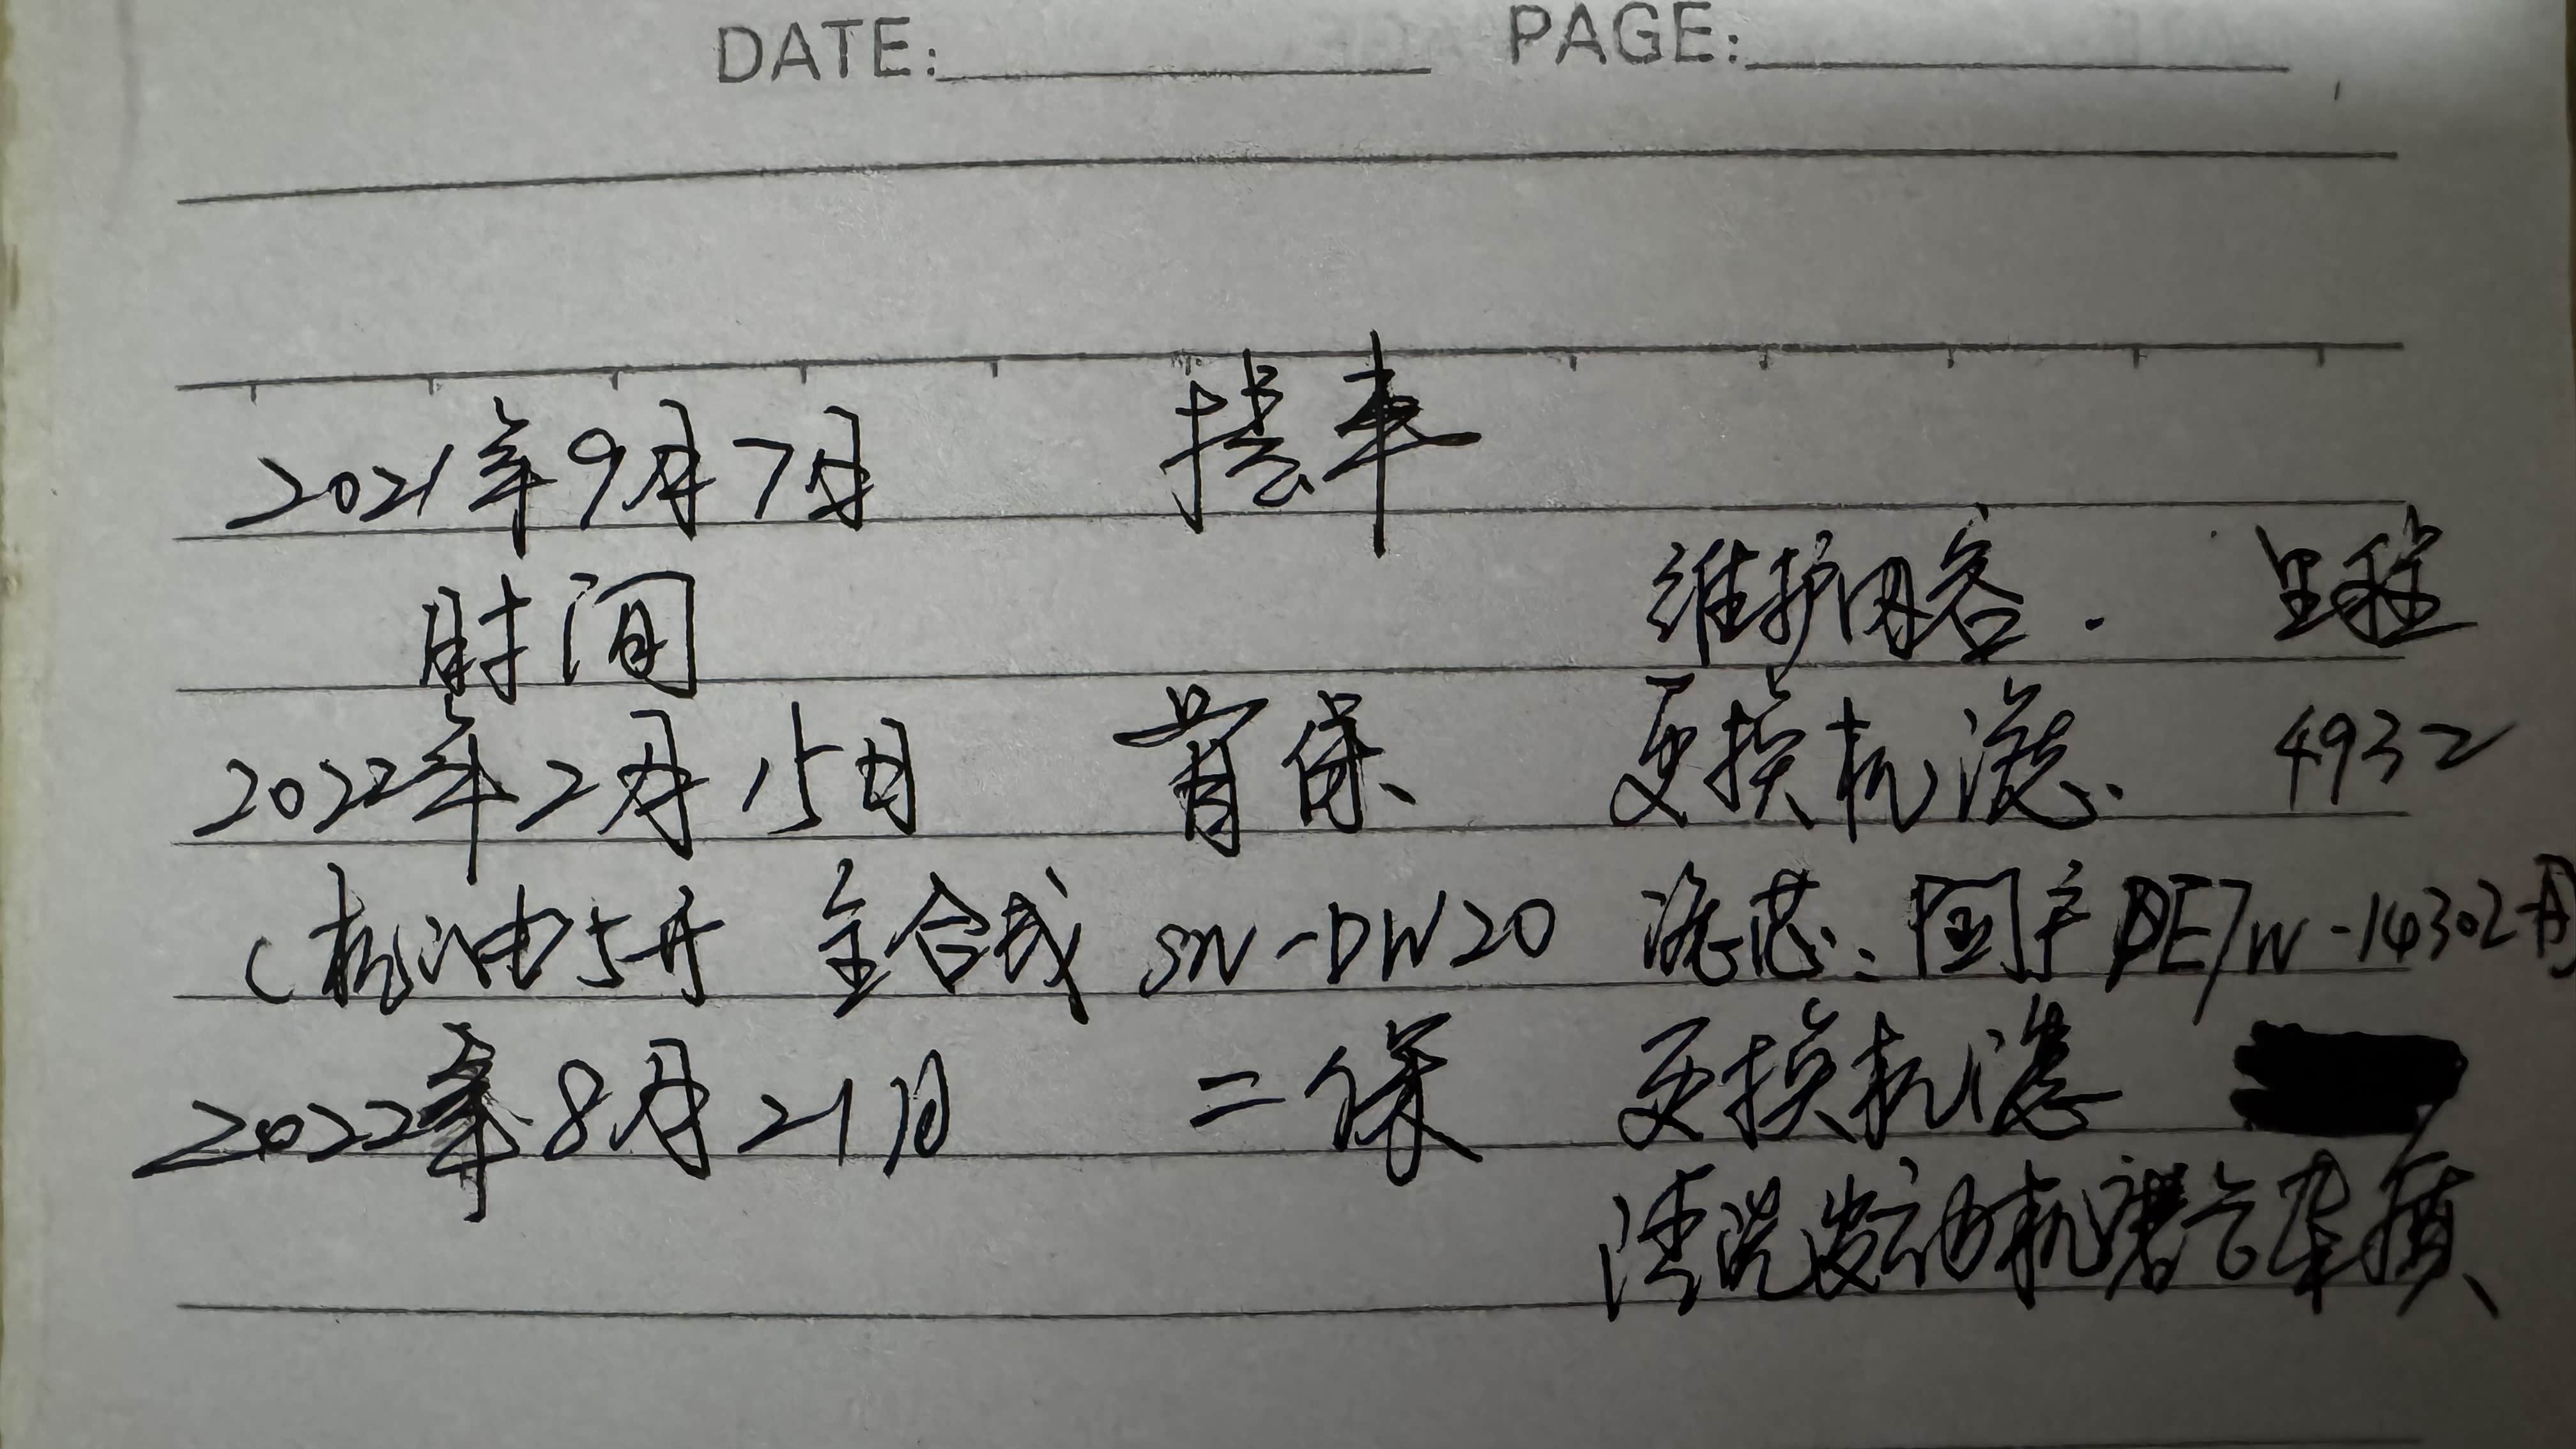 DATE: PAGE:
2021年9月7日 提车
时间 维护内容. 里程
2022年2月15日 首保 更换机滤. 4932
(机油5升 全合成 SN-0W20 滤芯: 14302-A)
2022年8月21日 二保 更换机滤
清洗发动机